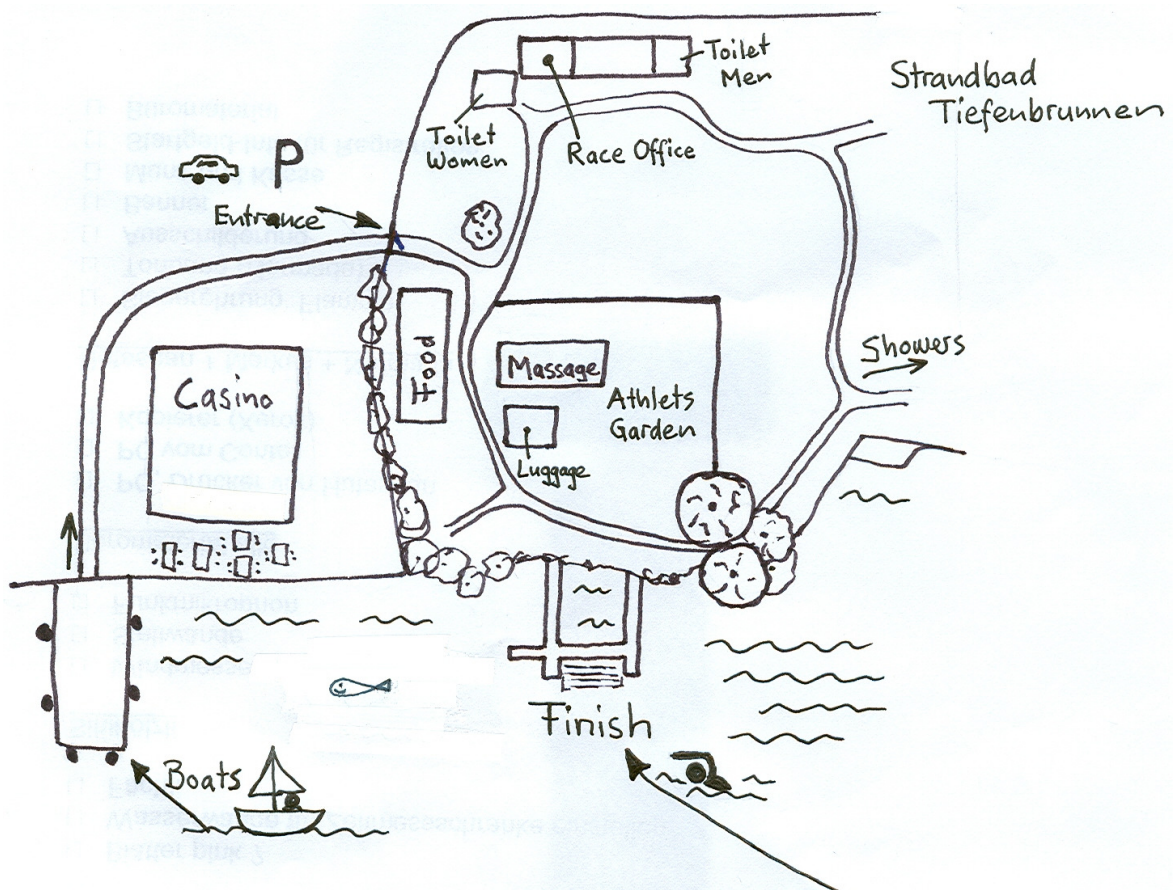 Toilet
Men
Strandbad
Tiefenbrunnen
Toilet
Women
Race Office
P
Entrance
Food
Showers
Massage
Casino
Athlets
Garden
Luggage
Finish
Boats